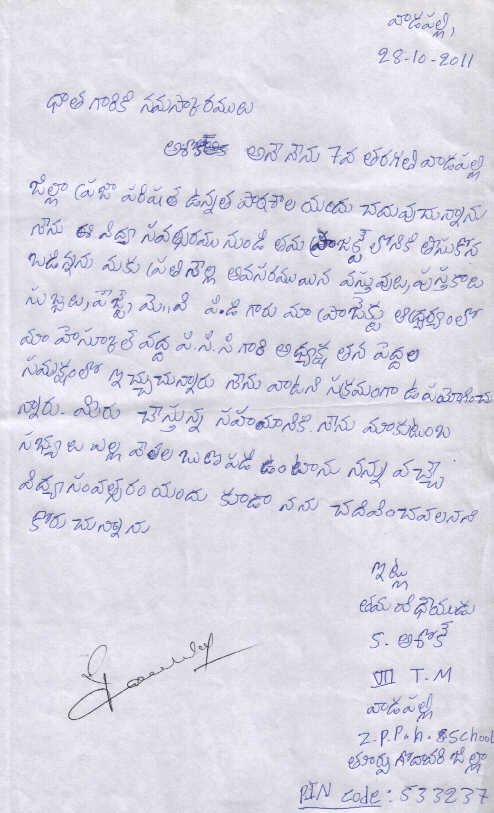 వాడపల్లి,
28-10-2011
ధాత గారికి నమస్కారములు
అశోక్ అనే నేను 7వ తరగతి వాడపల్లి
జిల్లా ప్రజా పరిషత్ ఉన్నత పాఠశాల యందు చదువుచున్నాను
నేను ఈ విద్యా సవత్సరము నుండి తమ ప్రాజెక్ట్ లోనికి తీసుకోన
బడిన్నను మకు ప్రతినెల్ల అవసరముయిన వస్తువులు, పుస్తకాలు
సబ్బులు, పేస్ట్, మొ,,వి పి.డి గారు మా ప్రాజెక్టు ఆధ్వర్యంలో
మా హెస్కూల్ వద్ద పి.సి.సి గారి అధ్యక్ష తన పెద్దల
సమక్షంలో ఇచ్చుచున్నారు నేను వాటిని సక్రమంగా ఉపయోగించు
న్నారు. మీరు చేస్తున్న సహయానికి నేను మాకుటుంబ
సభ్యులు ఎల్ల వేళల ఋణపడి ఉంటాను నన్ను వచ్చే
విద్యా సంవత్సరం యందు కూడా నను చదివించవలనని
కోరుచున్నాను
ఇట్లు
తమ విధేయుడు
S. అశోక్
VII T.M
వాడపల్లి
Z.P.P.h. School
తూర్పు గోదావరి జిల్లా
PIN code: 533237